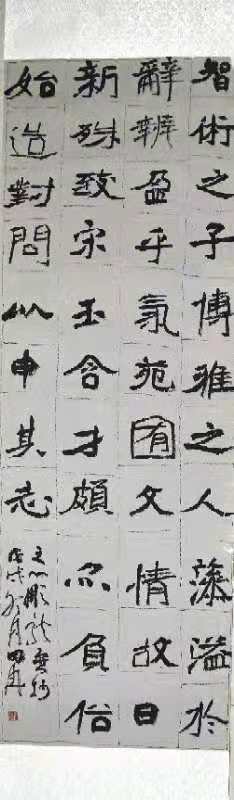 智術之子博雅之人藻溢於
辭辨盈乎氣苑囿文情故日
新殊致宋玉含才頗亦負俗
始造對問以申其志
文心雕龍
戊戌月